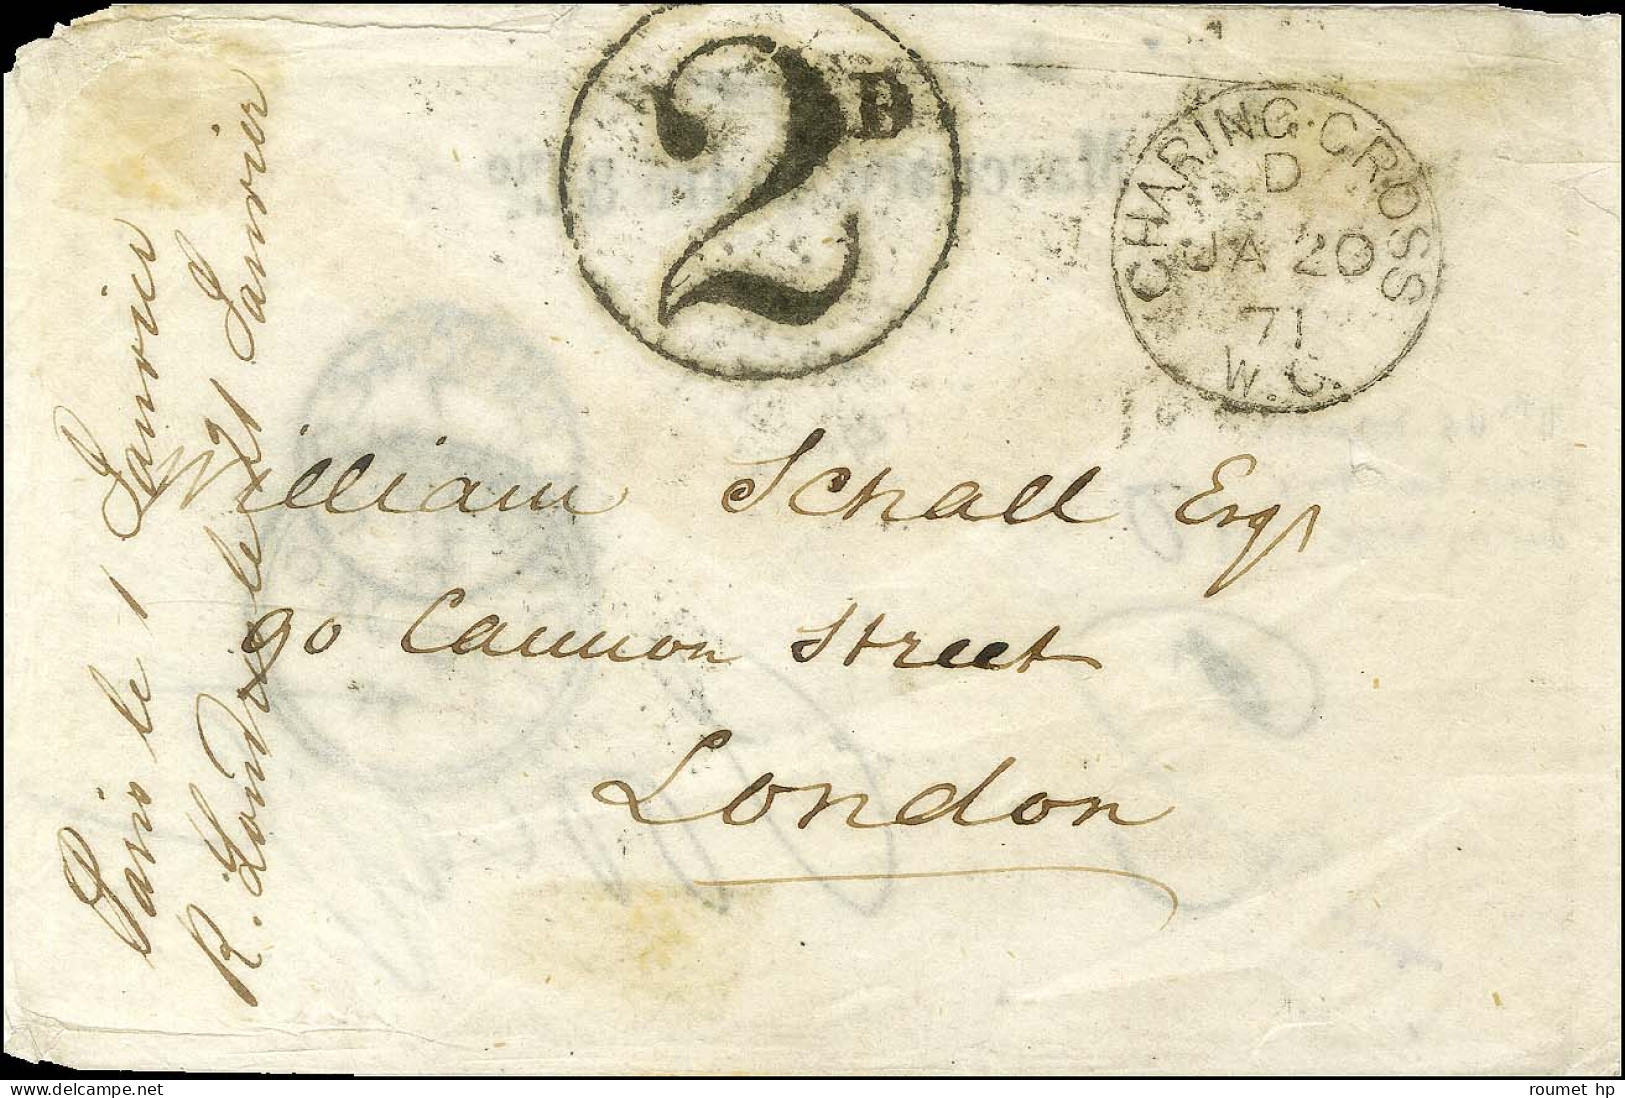 2D
CHARING·CROSS
D
JA 20
71
W.C.
William Schall Esqr
90 Cannon Street
London
Paris le 1 Janvier
R. Londres le 21 Janvier
delcampe.net
roumet hp